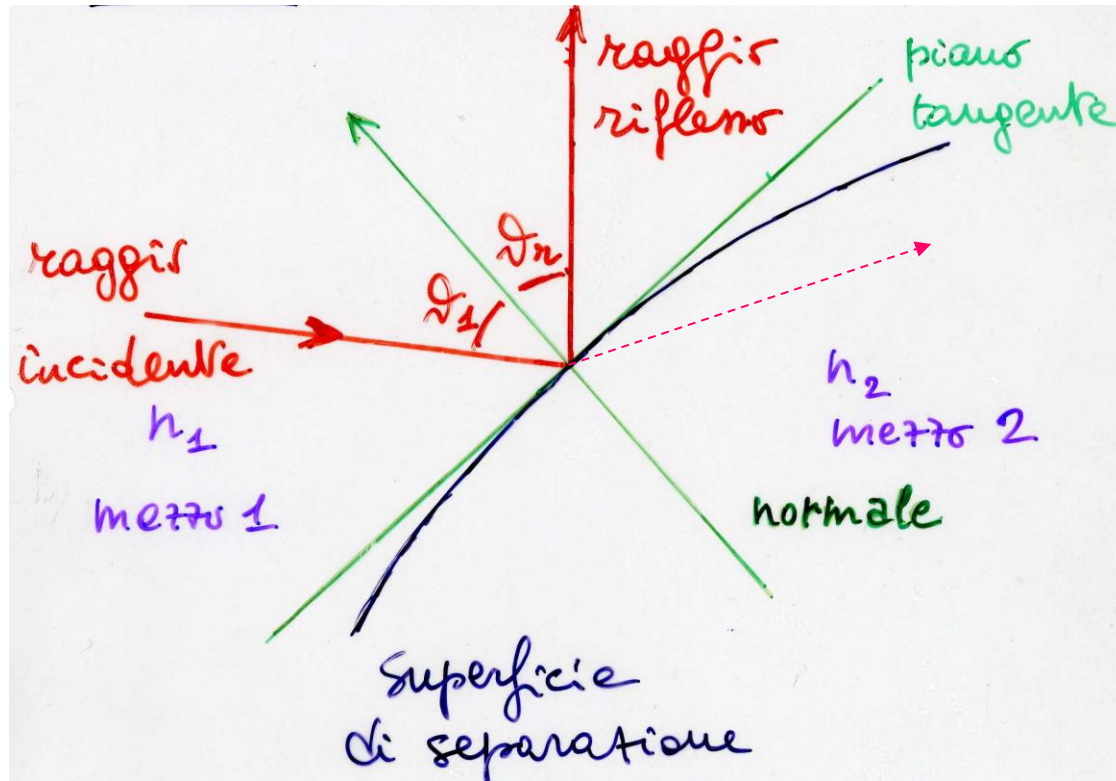 raggio
riflesso
piano
tangente
raggio
incidente
ϑr
ϑ1
n1
mezzo 1
n2
mezzo 2
normale
superficie
di separazione